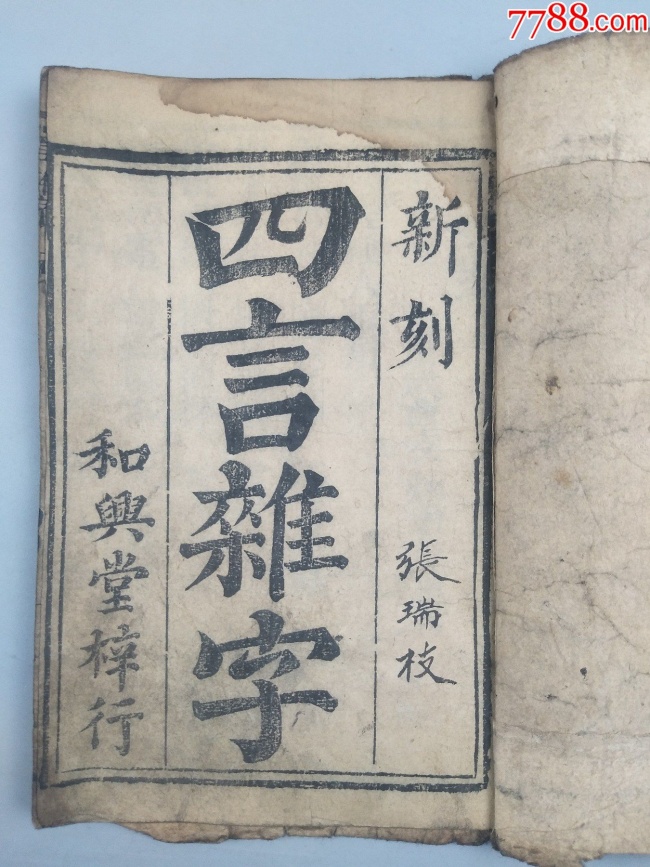 7788.com
新刻
張瑞枝
四言雜字
和興堂梓行